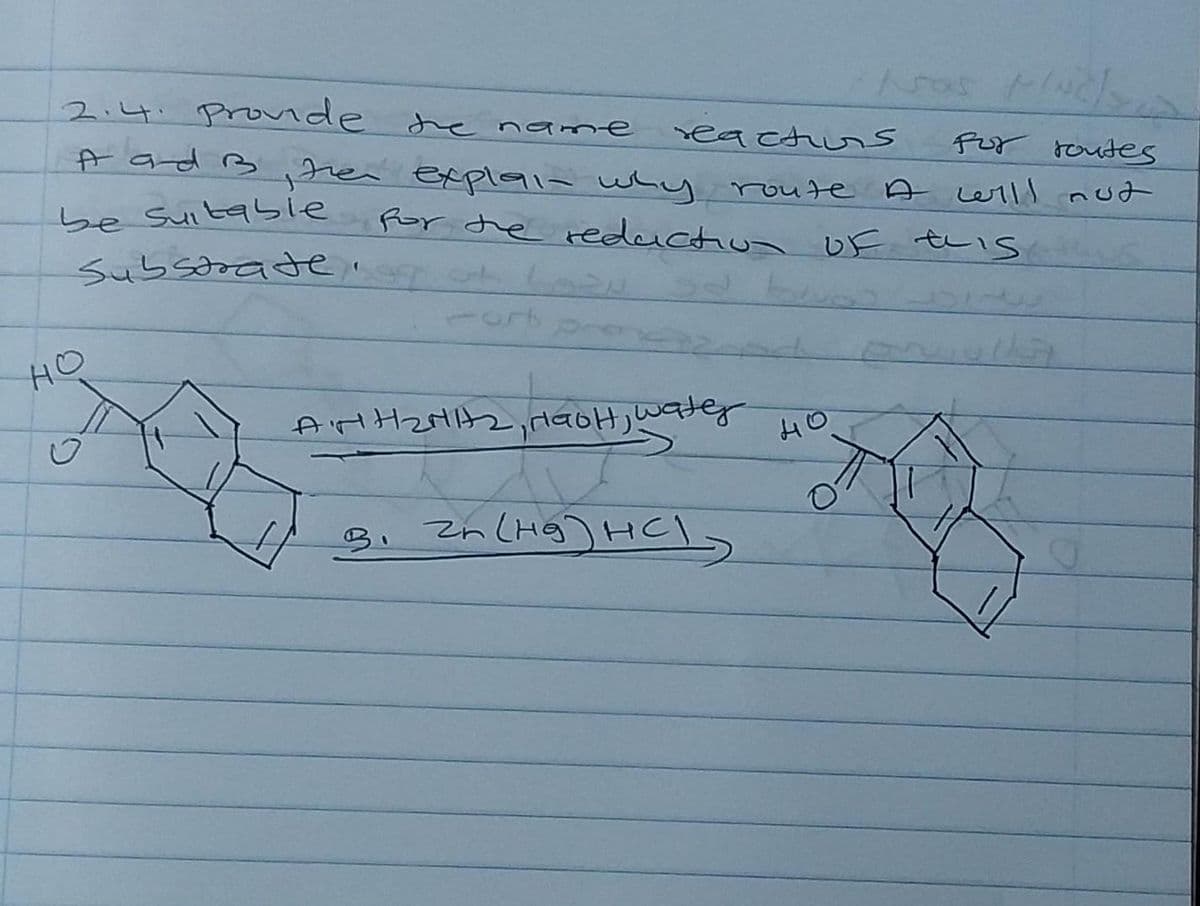 2.4. Provide the name reactions for routes
A and B, then explain why route A will not
be suitable for the reduction of this
substrate.
HO
O
A. NH2NH2, NaOH, water
B. Zn(Hg) HCl
HO
O